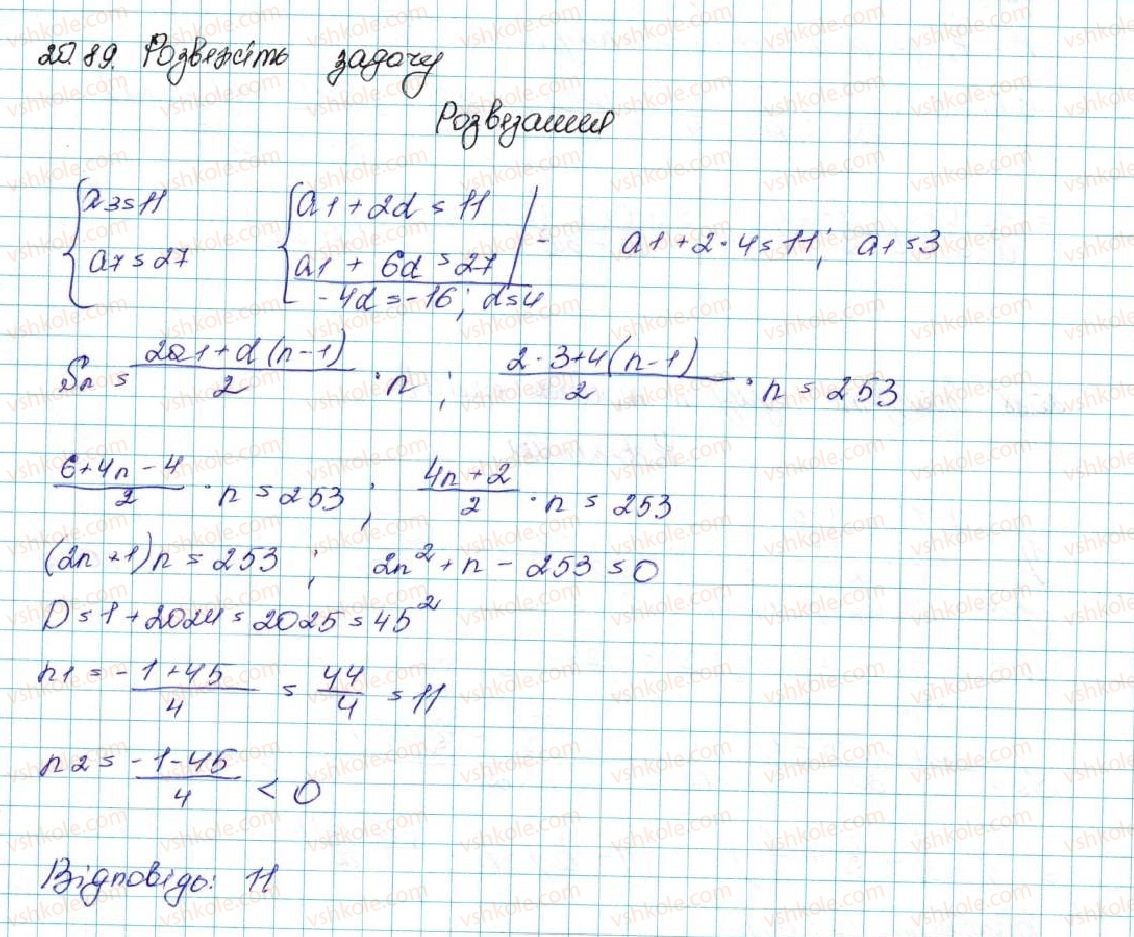 20.89. Розвежіть задачу
Розвезання
{a3 = 11 {a1 + 2d = 11 | - a1 + 2·4 = 11; a1 = 3
a7 = 27 a1 + 6d = 27
-4d = -16; d = 4
Sn = (2a1 + d(n-1))/2 · n; (2·3+4(n-1))/2 · n = 253
(6+4n-4)/2 · n = 253; (4n+2)/2 · n = 253
(2n+1)n = 253; 2n² + n - 253 = 0
D = 1 + 2024 = 2025 = 45²
n1 = (-1+45)/4 = 44/4 = 11
n2 = (-1-45)/4 < 0
Відповідь: 11
vshkole.com